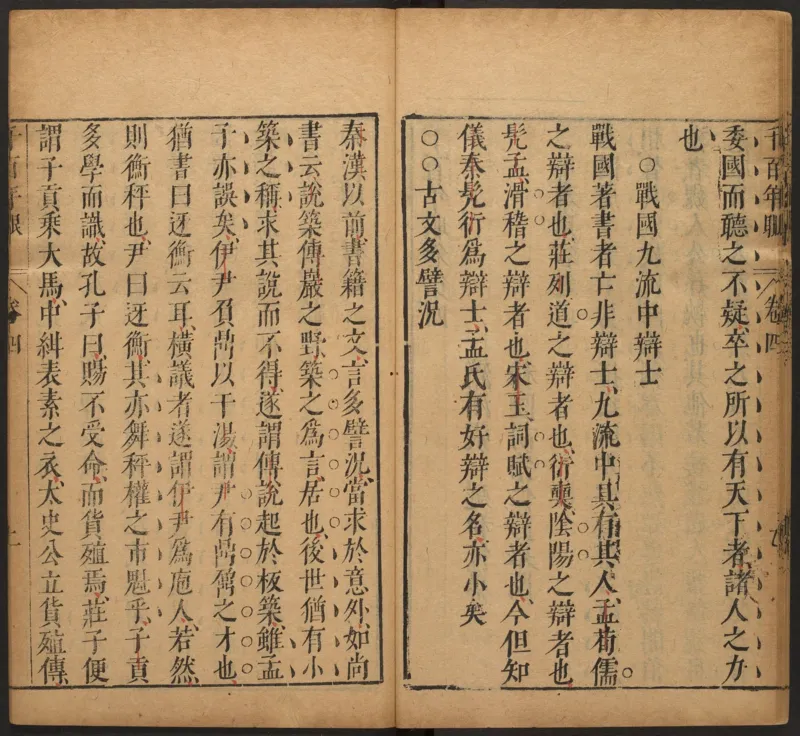 千百年眼 卷四
委國而聽之不疑卒之所以有天下者諸人之力
也
○戰國九流中辯士
戰國著書者亡非辯士九流中具有其人孟荀儒
之辯者也莊列道之辯者也衍奭陰陽之辯者也
髡孟滑稽之辯者也宋玉詞賦之辯者也今但知
儀秦髡衍爲辯士孟氏有好辯之名亦小矣
○○古文多譬況
秦漢以前書籍之文言多譬況當求於意外如尚
書云說築傅巖之野築之爲言居也後世猶有小
築之稱求其說而不得遂謂傅說起於板築雖孟
子亦誤矣伊尹負鼎以干湯謂尹有鼎鼐之才也
猶書曰迓衡云耳橫議者遂謂伊尹爲庖人若然
則衡秤也尹曰迓衡其亦舞秤權之市魁乎子貢
多學而識故孔子曰賜不受命而貨殖焉莊子便
謂子貢乘大馬中紺表素之衣太史公立貨殖傳
千百年眼 卷四